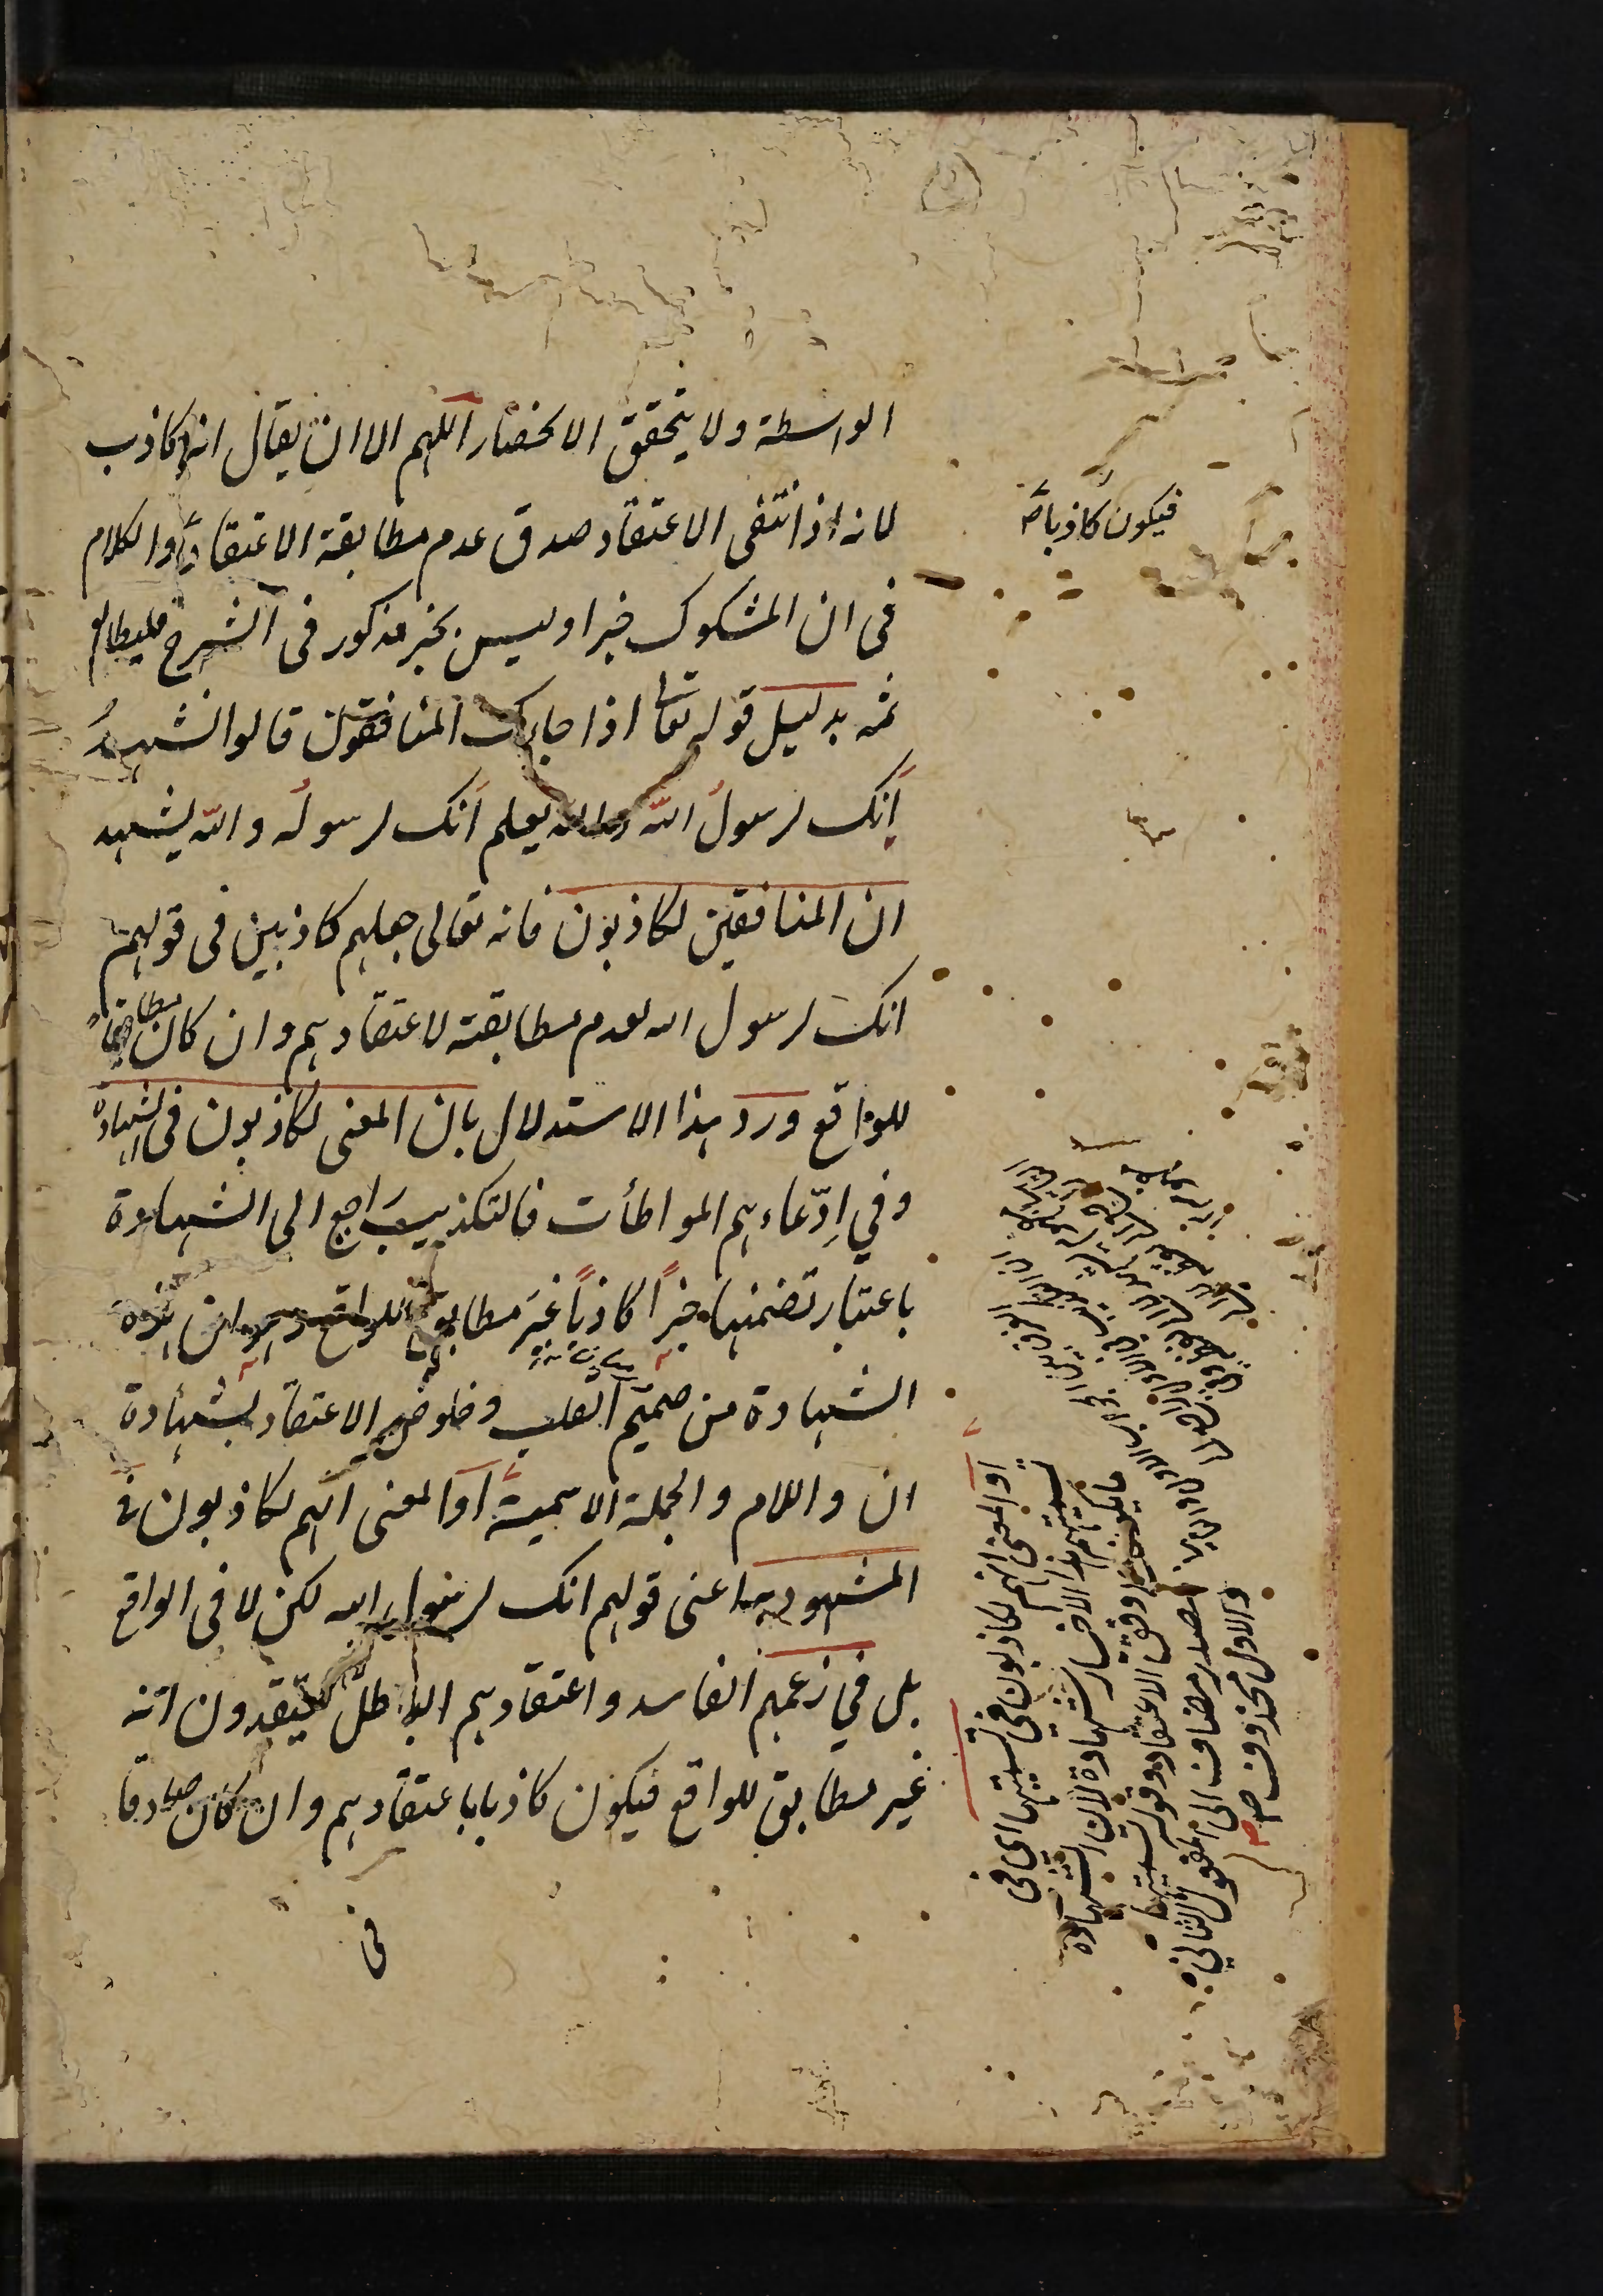 الواسطة ولا يتحقق الانحصار اللهم الا ان يقال انه كاذب
لانه اذا انتفى الاعتقاد صدق عدم مطابقة الاعتقاد والكلام
فى ان المشكوك خبر او ليس بخبر مذكور فى الشرح فليطالع
ثمه بدليل قوله تعا اذا جاءك المنافقون قالوا نشهد
انك لرسول الله والله يعلم انك لرسوله والله يشهد
ان المنافقين لكاذبون فانه تعالى جعلهم كاذبين فى قولهم
انك لرسول الله لعدم مطابقته لاعتقادهم وان كان مطابقا
للواقع ورد هذا الاستدلال بان المعنى لكاذبون فى الشهادة
وفي ادّعاءهم المواطأت فالتكذيب راجع الى الشهادة
باعتبار تضمنها خبرًا كاذبًا غيرَ مطابق للواقع وهو ان هذه
الشهادة من صميم القلب وخلوص الاعتقاد بشهادة
ان واللام والجملة الاسمية او المعنى انهم لكاذبون فى
المشهود به اعنى قولهم انك لرسول الله لكن لا فى الواقع
بل في زعمهم الفاسد واعتقادهم الباطل يعتقدون انه
غير مطابق للواقع فيكون كاذبا باعتقادهم وان كان صادقا
فى
فيكون كاذبا صح
او المعنى انهم لكاذبون فى تسميتها اى فى
تسميتهم هذا الاخبار شهادة لان الشهادة
ما يكون على وفق الاعتقاد وقوله تسميتها
مصدر مضاف الى المفعول الثانى
والاول محذوف صح